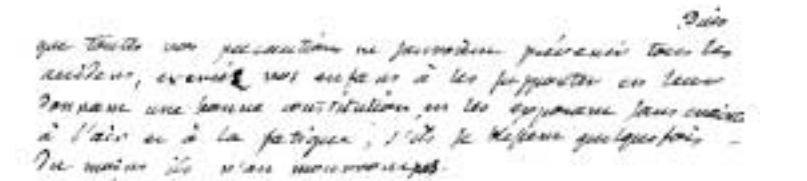 Puis
que toutes vos précautions ne sauroient prévenir tous les
accidens, exercez vos enfans à les supporter en leur
donnant une bonne constitution, en les exposant sans crainte
à l'air et à la fatigue ; s'ils se blessent quelquefois -
Du moins ils n'en mourront pas.